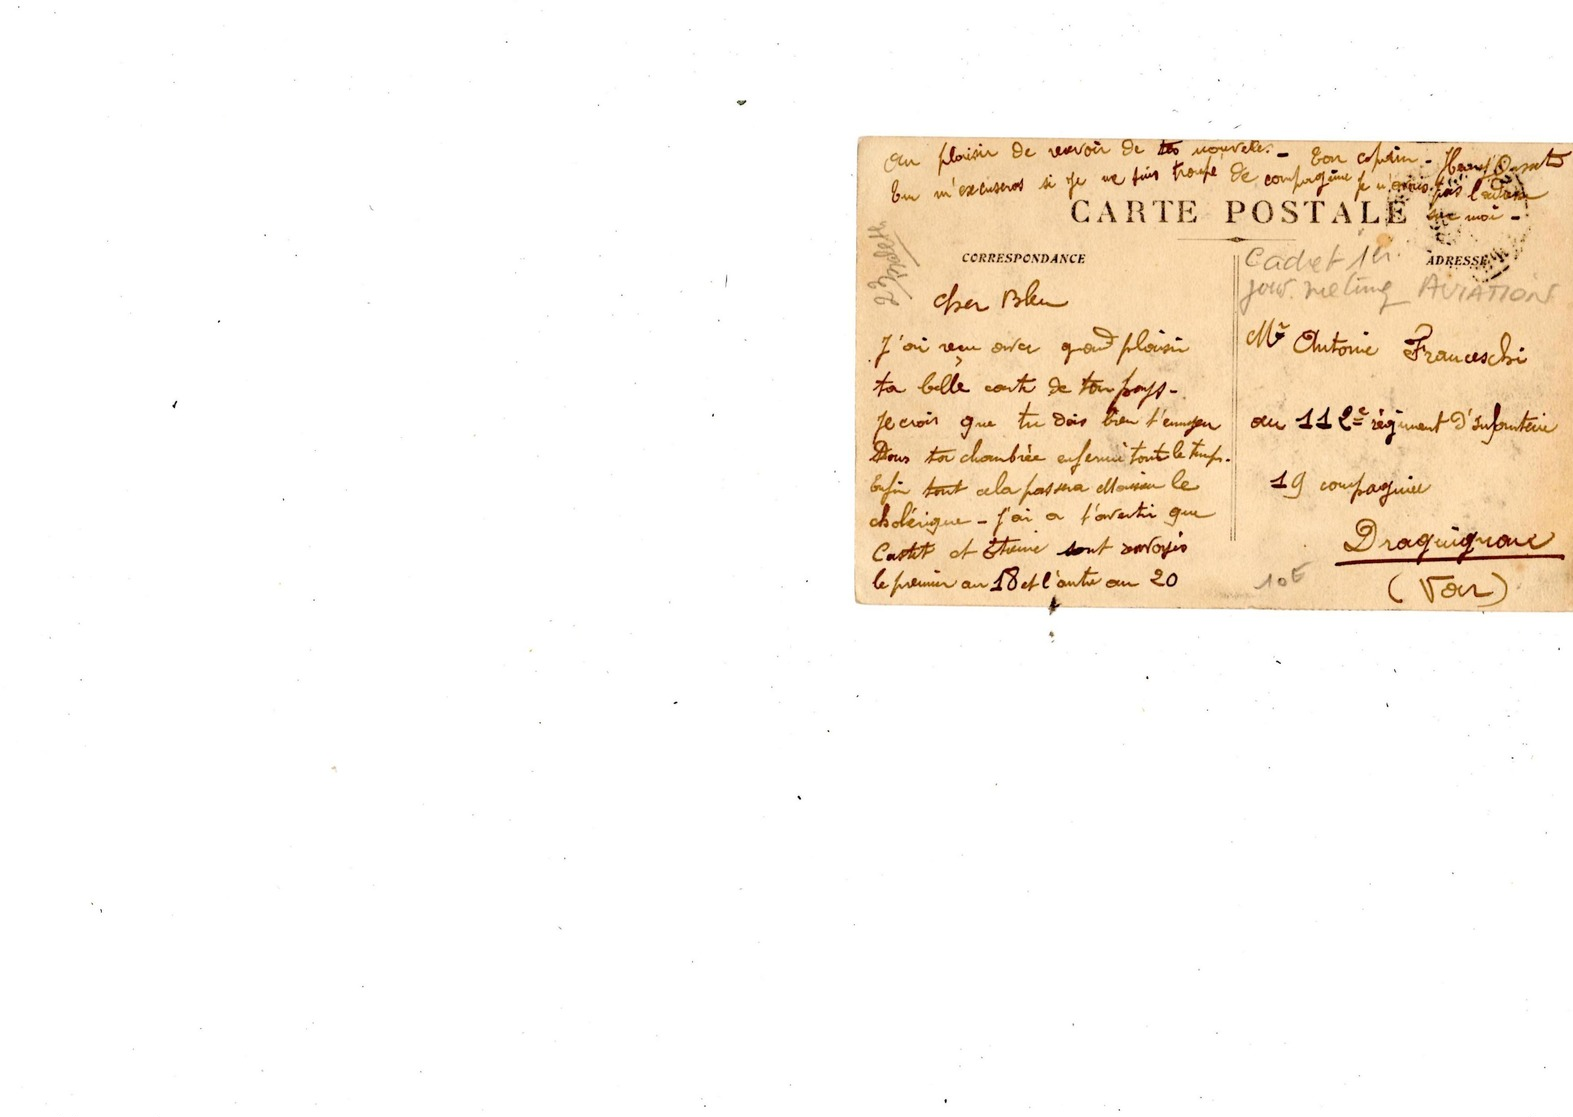 Au plaisir de revoir de tes nouvelles. - Ton copain - Henry
Tu m'excuseras si je me suis trompé de compagnie je n'avais pas l'adresse
sur moi -
CARTE POSTALE
CORRESPONDANCE
Cher Bleu
J'ai reçu avec grand plaisir
ta belle carte de ton pays -
Je crois que tu dois bien t'ennuyer
Dans ta chambrée enfermé tout le temps.
Enfin tout cela passera Monsieur le
cholérique - j'ai a t'avertir que
Castet et Étienne sont renvoyés
le premier au 18 et l'autre au 20
ADRESSE
Cadet 1er
jour. meting AVIATION
Mr Antoine Franceschi
au 112e régiment d'infanterie
19 compagnie
Draguignan
(Var)
10E